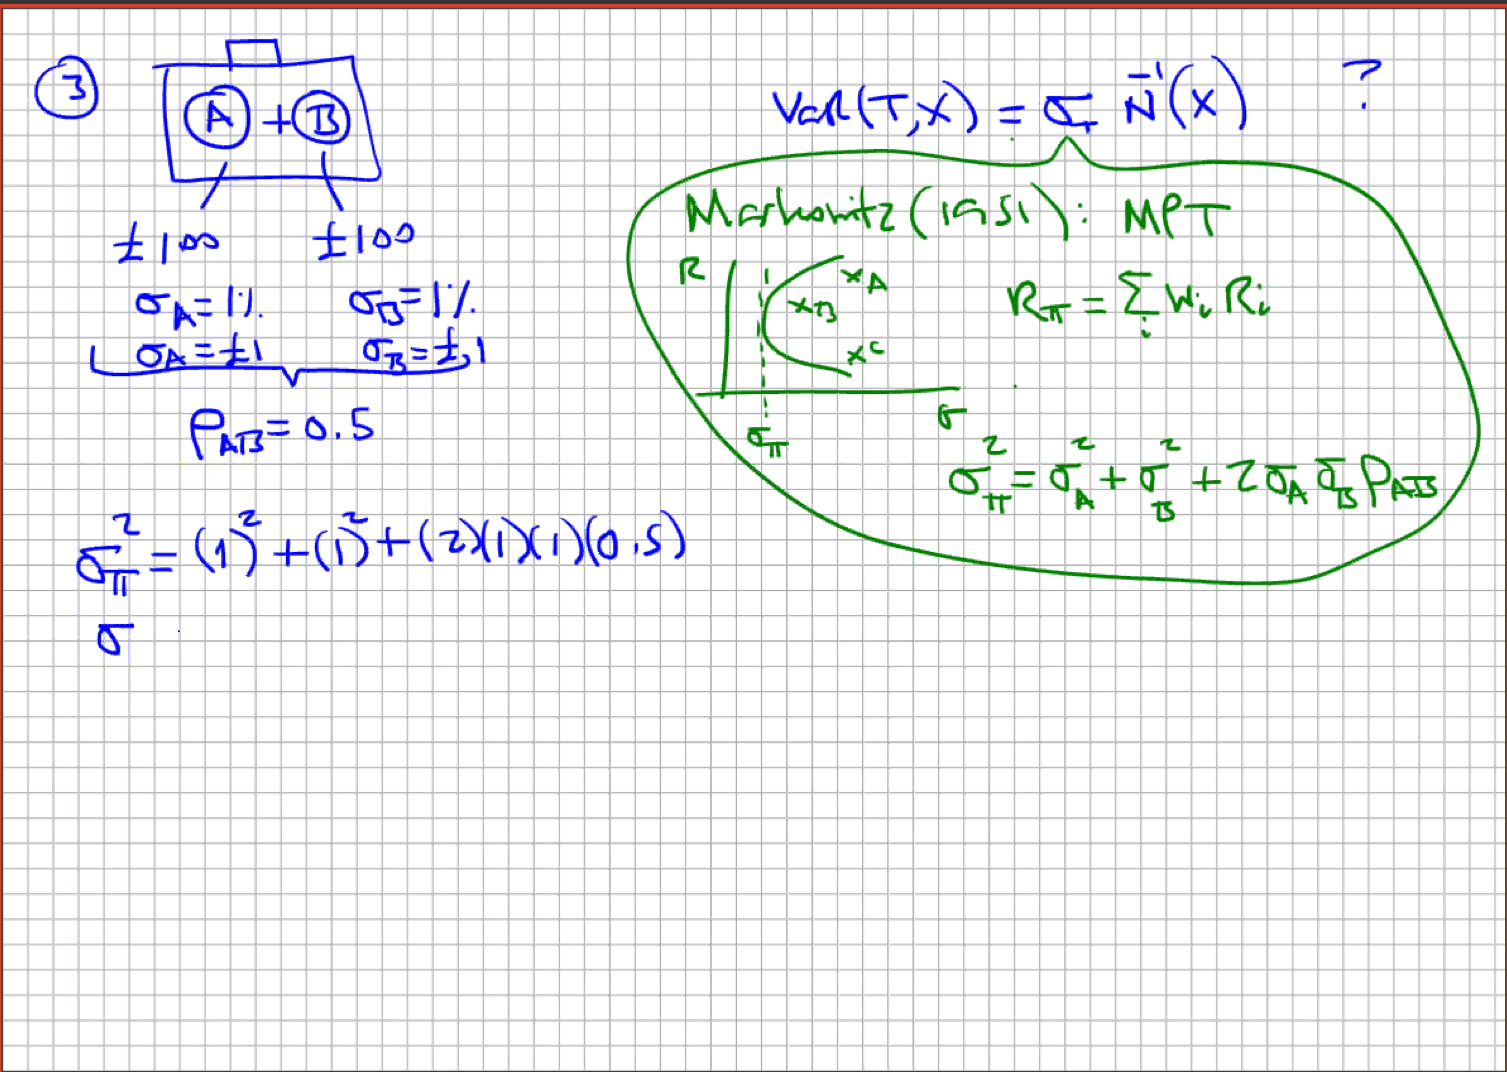 ③
A + B
£100 £100
σA = 1% σB = 1%
σA = £1 σB = £1
ρAB = 0.5
σπ² = (1)² + (1)² + (2)(1)(1)(0.5)
σ
VaR(T,X) = σπ N⁻¹(X) ?
Markowitz (1951): MPT
R
xA
xB
xC
σ
σπ
Rπ = Σi Wi Ri
σπ² = σA² + σB² + 2σA σB ρAB